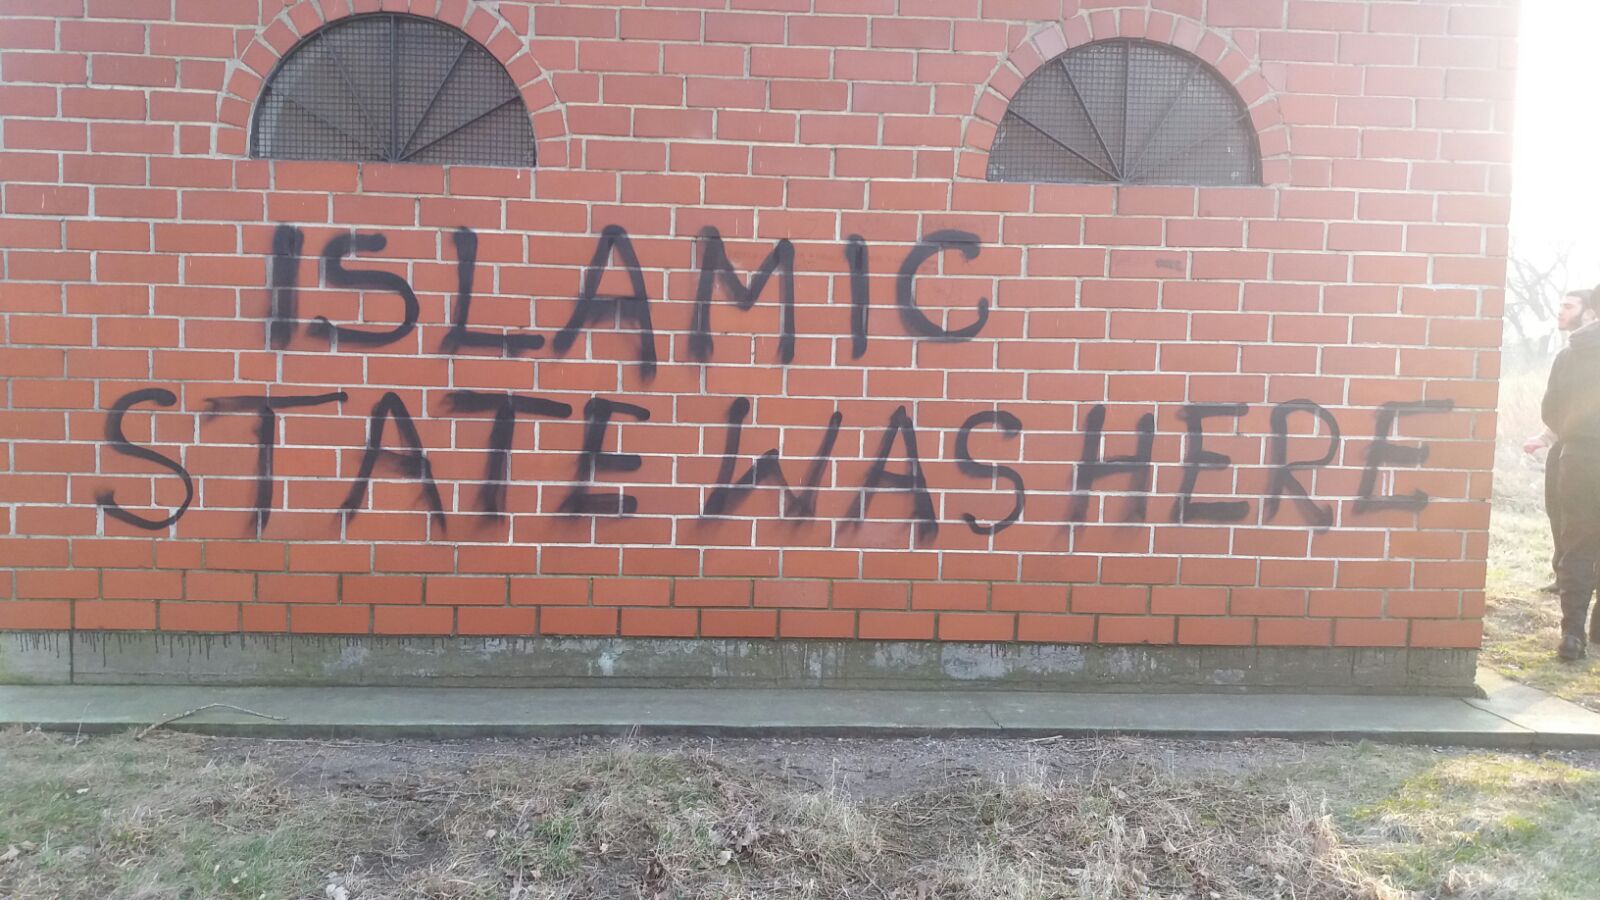 ISLAMIC
STATE WAS HERE